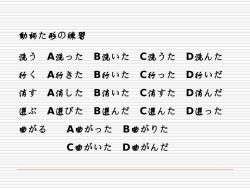 動詞た形の練習
洗う　A洗った　B洗いた　C洗うた　D洗んた
行く　A行きた　B行いた　C行った　D行いだ
消す　A消した　B消いた　C消すた　D消んだ
選ぶ　A選びた　B選んだ　C選んた　D選った
曲がる　A曲がった　B曲がりた
C曲がいた　D曲がんだ